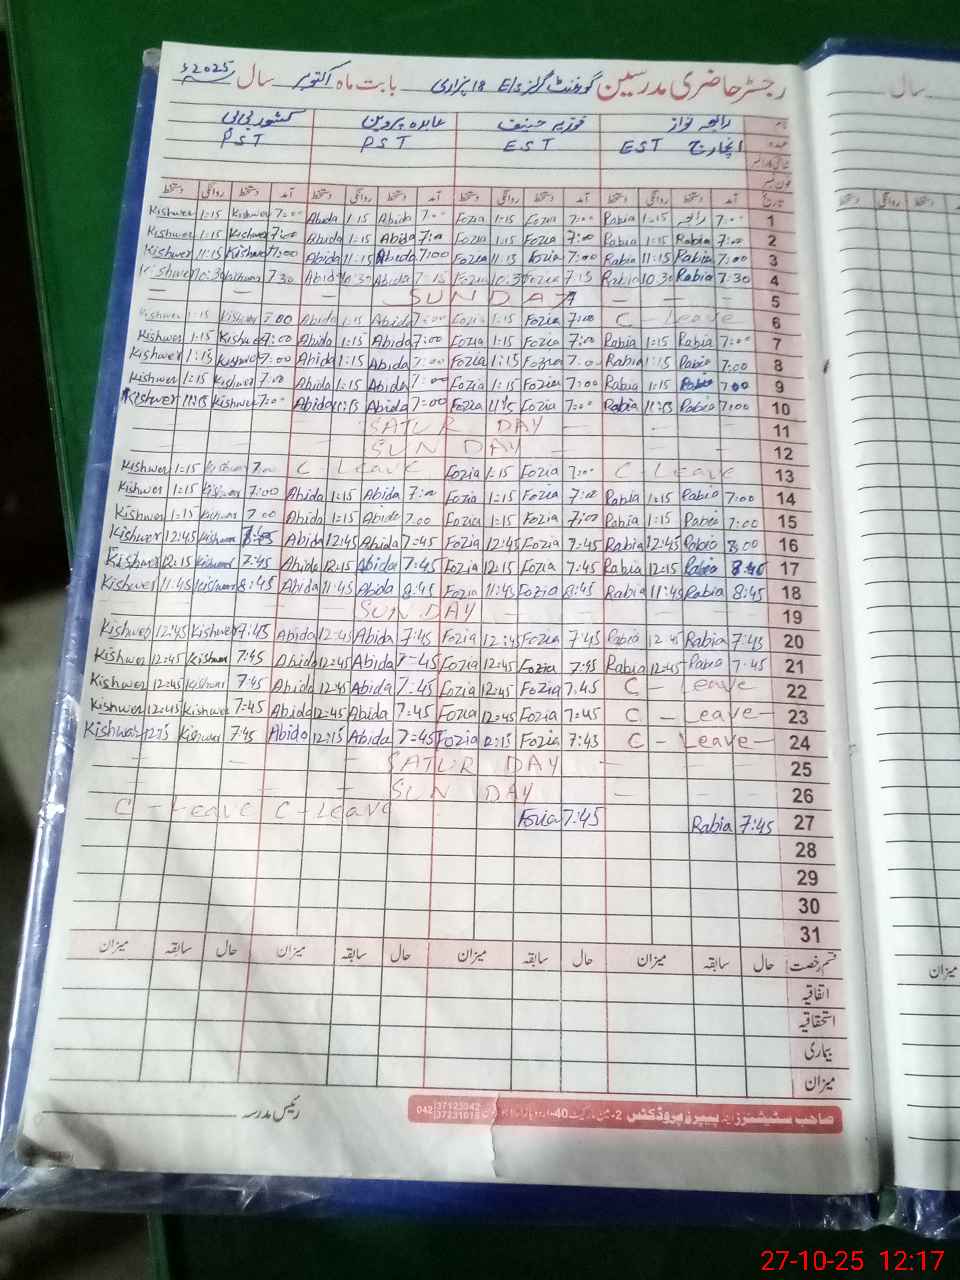 رجسٹر حاضری مدرسین گورنمنٹ گرلز 18 ہزاری بابت ماہ اکتوبر سال 2025ء
سال
نام رابعہ نواز فوزیہ حنیف عابدہ پروین کشور بی بی
عہدہ انچارج EST EST PST PST
تاریخ آمد دستخط روانگی دستخط آمد دستخط روانگی دستخط آمد دستخط روانگی دستخط آمد دستخط روانگی دستخط
Kishwer 1:15 Kishwer 7:00 Abida 1:15 Abida 7:00 Fozia 1:15 Fozia 7:00 Rabia 1:15 رابعہ 7:00 1
Kishwer 1:15 Kishwer 7:00 Abida 1:15 Abida 7:00 Fozia 1:15 Fozia 7:00 Rabia 1:15 Rabia 7:00 2
Kishwer 11:15 Kishwer 7:00 Abida 11:15 Abida 7:00 Fozia 11:15 Fozia 7:00 Rabia 11:15 Rabia 7:00 3
Kishwer 10:30 Kishwer 7:30 Abida 10:30 Abida 7:15 Fozia 10:30 Fozia 7:15 Rabia 10:30 Rabia 7:30 4
SUNDAY 5
Kishwer 1:15 Kishwer 7:00 Abida 1:15 Abida 7:00 Fozia 1:15 Fozia 7:00 C - Leave 6
Kishwer 1:15 Kishwer 7:00 Abida 1:15 Abida 7:00 Fozia 1:15 Fozia 7:00 Rabia 1:15 Rabia 7:00 7
Kishwer 1:15 Kishwer 7:00 Abida 1:15 Abida 7:00 Fozia 1:15 Fozia 7:00 Rabia 1:15 Rabia 7:00 8
Kishwer 1:15 Kishwer 7:00 Abida 1:15 Abida 7:00 Fozia 1:15 Fozia 7:00 Rabia 1:15 Rabia 7:00 9
Kishwer 11:15 Kishwer 7:00 Abida 11:15 Abida 7:00 Fozia 11:15 Fozia 7:00 Rabia 11:15 Rabia 7:00 10
SATUR DAY 11
SUN DAY 12
Kishwer 1:15 Kishwer 7:00 C - Leave Fozia 1:15 Fozia 7:00 C - Leave 13
Kishwer 1:15 Kishwer 7:00 Abida 1:15 Abida 7:00 Fozia 1:15 Fozia 7:00 Rabia 1:15 Rabia 7:00 14
Kishwer 1:15 Kishwer 7:00 Abida 1:15 Abida 7:00 Fozia 1:15 Fozia 7:00 Rabia 1:15 Rabia 7:00 15
Kishwer 12:45 Kishwer Abida 12:45 Abida 7:45 Fozia 12:45 Fozia 7:45 Rabia 12:45 Rabia 8:00 16
Kishwer 12:15 Kishwer 7:45 Abida 12:15 Abida 7:45 Fozia 12:15 Fozia 7:45 Rabia 12:15 Rabia 17
Kishwer 11:45 Kishwer 8:45 Abida 11:45 Abida 8:45 Fozia 11:45 Fozia 8:45 Rabia 11:45 Rabia 8:45 18
SUNDAY 19
Kishwer 12:45 Kishwer 7:45 Abida 12:45 Abida 7:45 Fozia 12:45 Fozia 7:45 Rabia 12:45 Rabia 7:45 20
Kishwer 12:45 Kishwer 7:45 Abida 12:45 Abida 7:45 Fozia 12:45 Fozia 7:45 Rabia 12:45 Rabia 7:45 21
Kishwer 12:45 Kishwer 7:45 Abida 12:45 Abida 7:45 Fozia 12:45 Fozia 7:45 C - Leave 22
Kishwer 12:45 Kishwer 7:45 Abida 12:45 Abida 7:45 Fozia 12:45 Fozia 7:45 C - Leave 23
Kishwer 12:15 Kishwer 7:45 Abida 12:15 Abida 7:45 Fozia 12:15 Fozia 7:45 C - Leave 24
SATUR DAY 25
SUN DAY 26
C - Leave C - Leave Fozia 7:45 Rabia 7:45 27
28
29
30
31
قسم رخصت حال سابقہ میزان حال سابقہ میزان حال سابقہ میزان حال سابقہ میزان
میزان
اتفاقیہ
استحقاقیہ
بیماری
میزان
رئیس مدرسہ
صاحب سٹیشنرز اینڈ پیپر پروڈکٹس
27-10-25 12:17